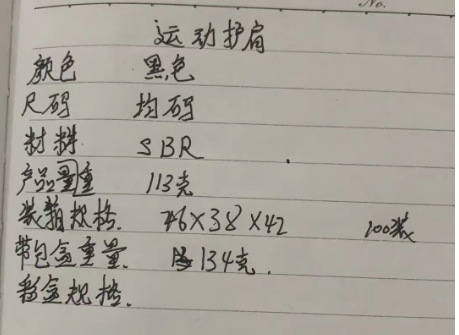 No.
运动护肩
颜色 黑色
尺码 均码
材料 SBR
产品重 113克
装箱规格. 76×38×42 100装
带包盒重量. 134克.
彩盒规格.